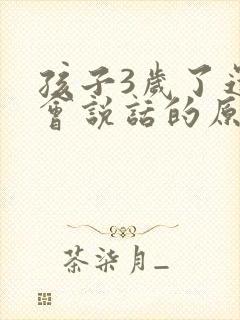 孩子3歲了還
會説話的原
茶柒月_